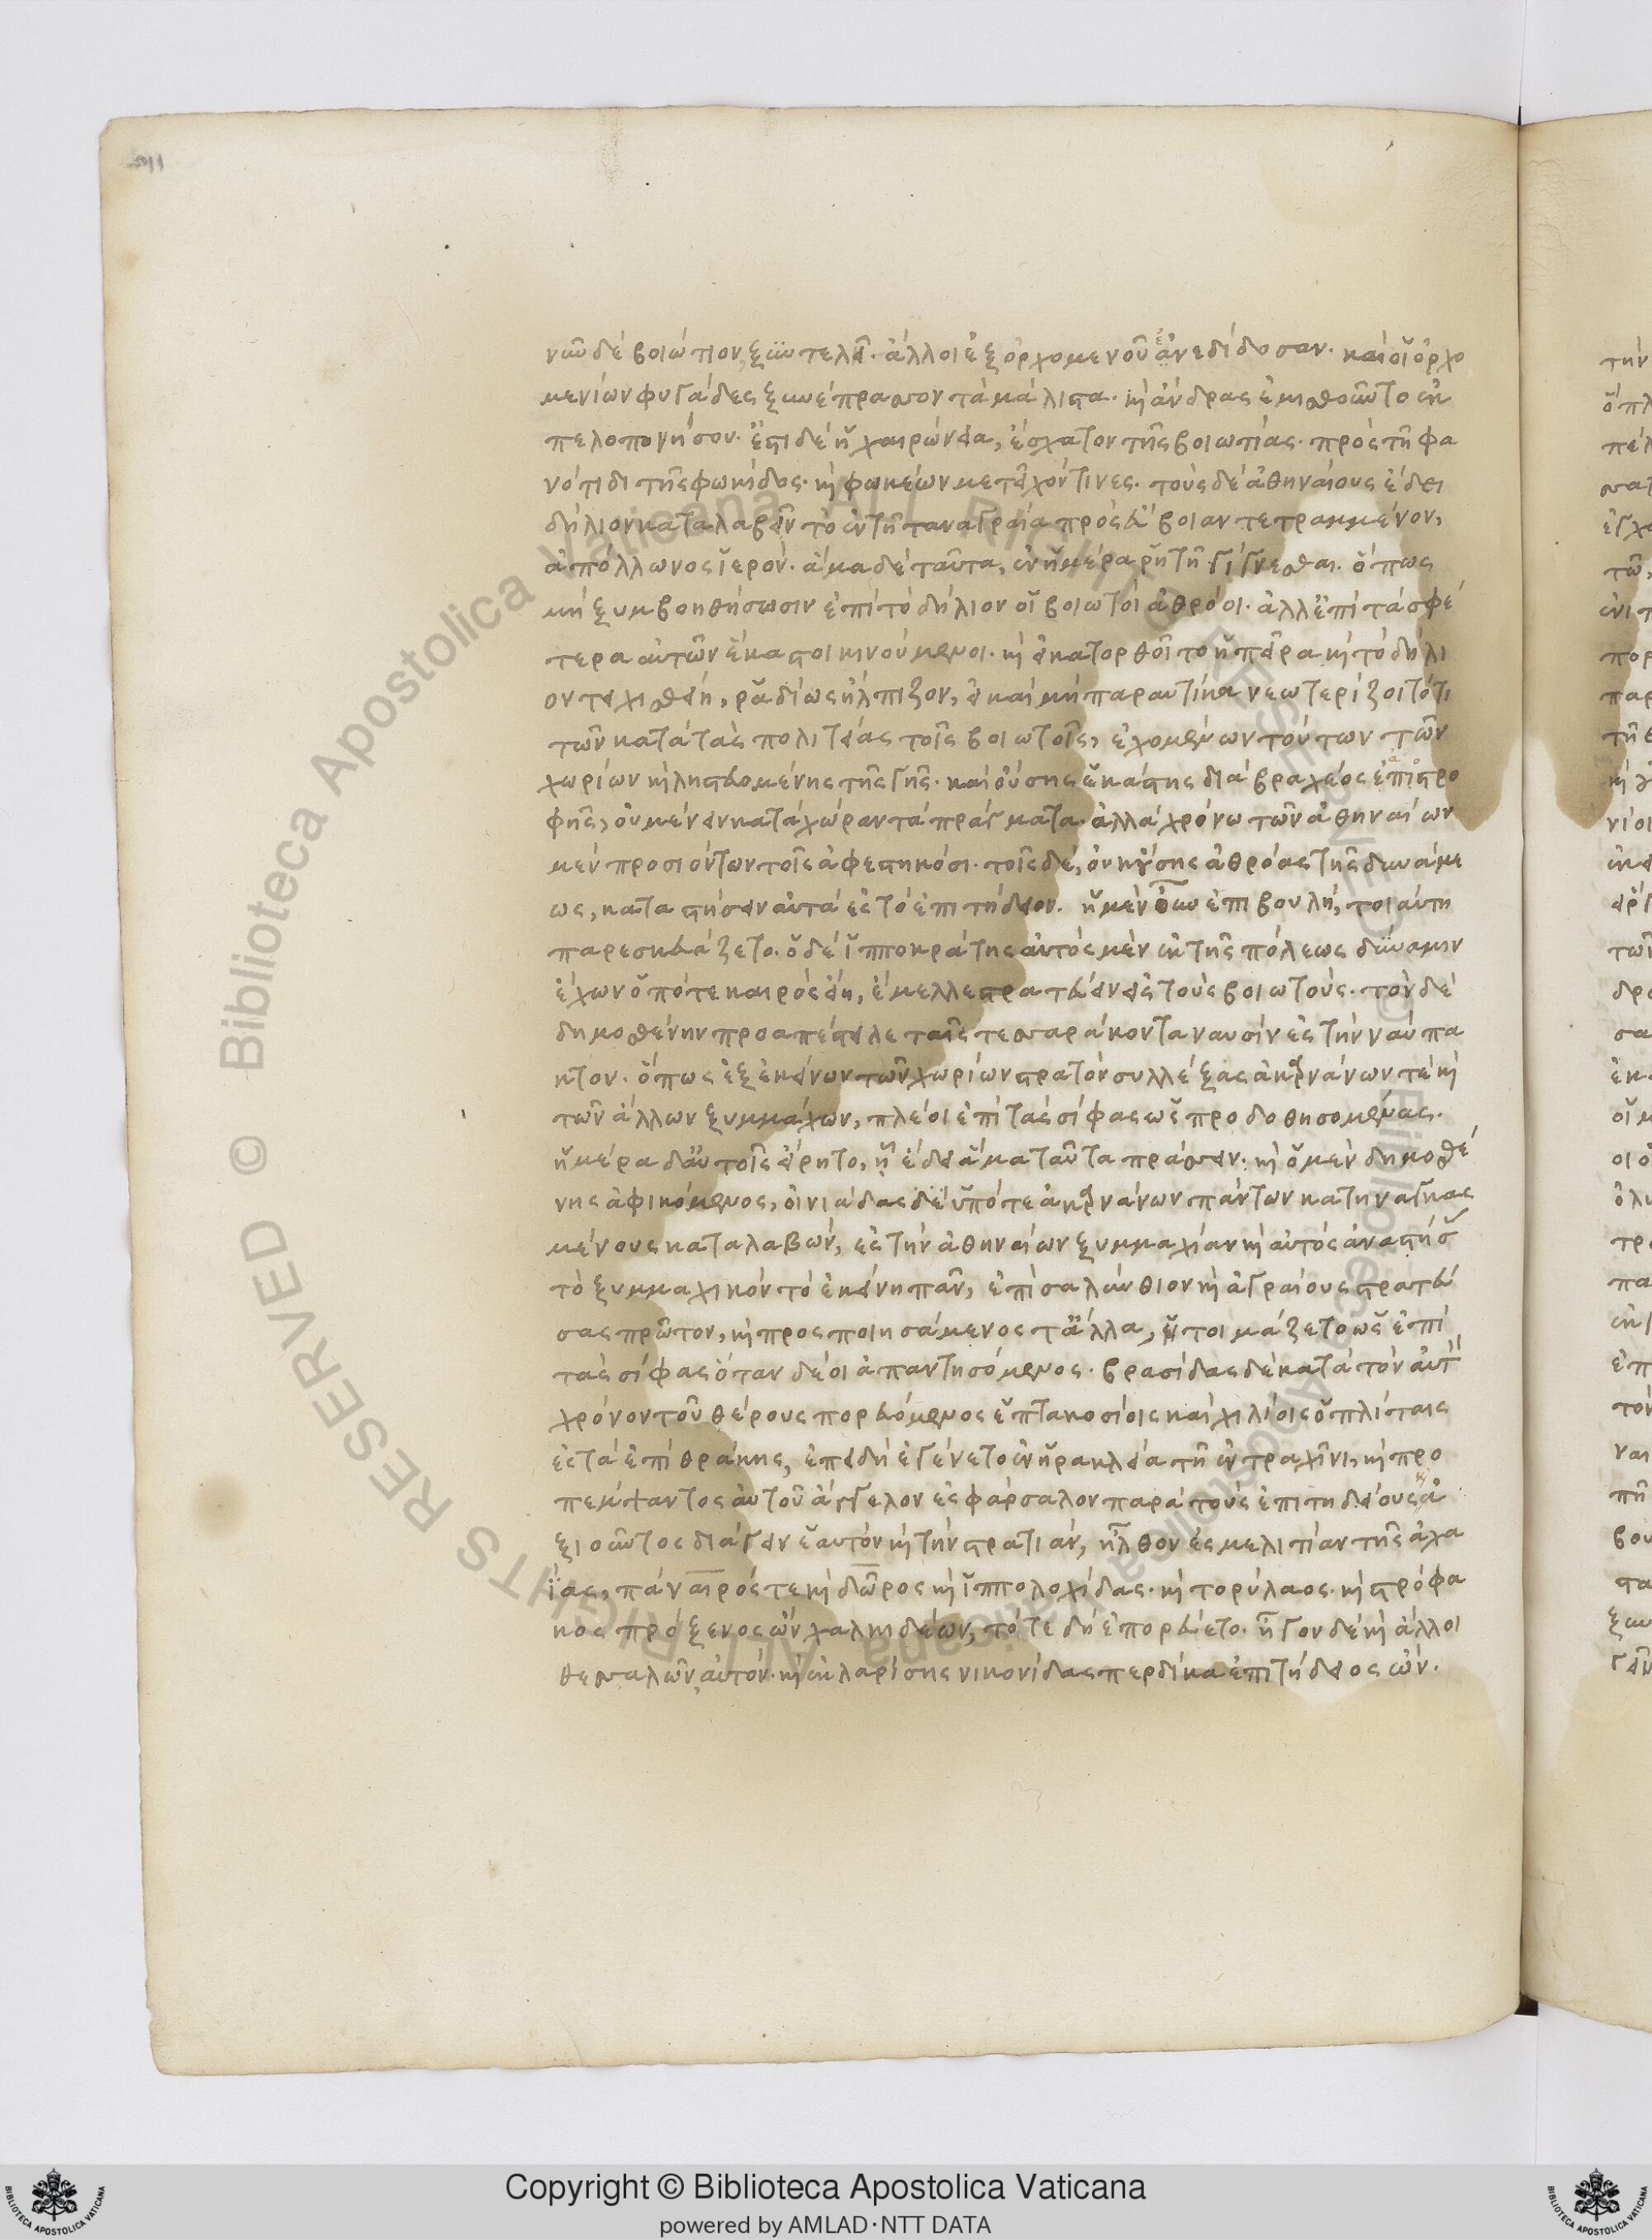 νῦν δὲ βοιώτιον, ξυντελεῖ· ἄλλοι ἐξ ὀρχομενοῦ ἐνεδίδοσαν· καὶ οἱ ὀρχο
μενίων φυγάδες ξυνέπρασσον τὰ μάλιστα· κὶ ἄνδρας ἐμισθοῦντο ἐκ
πελοποννήσου· ἔστι δὲ ἡ χαιρώνεια, ἔσχατον τῆς βοιωτίας· πρὸς τῆ φα
νότιδι τῆς φωκίδος· κὶ φωκέων μετεῖχόν τινες· τοὺς δὲ ἀθηναίους ἔδει
δήλιον καταλαβεῖν τὸ ἐν τῆ ταναγραία πρὸς εὔβοιαν τετραμμένον,
ἀπόλλωνος ἱερόν· ἅμα δὲ ταῦτα, ἐν ἡμέρα ῥητῆ γίγνεσθαι· ὅπως
μὴ ξυμβοηθήσωσιν ἐπὶ τὸ δήλιον οἱ βοιωτοὶ ἀθρόοι· ἀλλ ἐπὶ τὰ σφέ
τερα αὐτῶν ἕκαστοι κινούμενοι· κὶ εἰ κατορθοῖτο ἡ πεῖρα κὶ τὸ δήλι
ον τειχισθείη, ῥαδίως ἤλπιζον, εἰ καὶ μὴ παραυτίκα νεωτερίζοιτό τι
τῶν κατὰ τὰς πολιτείας τοῖς βοιωτοῖς, ἐχομένων τούτων τῶν
χωρίων κὶ ληστευομένης τῆς γῆς· καὶ οὔσης ἑκάστης διὰ βραχέος ἐπιστρο
φῆς, οὐ μένειν κατὰ χώραν τὰ πράγματα· ἀλλὰ χρόνω τῶν ἀθηναίων
μὲν προσιόντων τοῖς ἀφεστηκόσι· τοῖς δέ, οὐκ οὔσης ἀθρόας τῆς δυνάμε
ως, καταστήσειν αὐτὰ ἐς τὸ ἐπιτήδειον. ἡ μὲν οὖν ἐπιβουλή, τοιαύτη
παρεσκευάζετο· ὁ δὲ ἱπποκράτης αὐτὸς μὲν ἐκ τῆς πόλεως δύναμιν
ἔχων ὁπότε καιρὸς εἴη, ἔμελλε στρατεύειν ἐς τοὺς βοιωτούς· τὸν δὲ
δημοσθένην προαπέστειλε ταῖς τεσσαράκοντα ναυσὶν ἐς τὴν ναύπα
κτον· ὅπως ἐξ ἐκείνων τῶν χωρίων στρατὸν συλλέξας ἀκαρνάνων τὲ κὶ
τῶν ἄλλων ξυμμάχων, πλέοι ἐπὶ τὰς σίφας ὡς προδοθησομένας·
ἡμέρα δ αὐτοῖς εἴρητο, ἧ ἔδει ἅμα ταῦτα πράσσειν· κὶ ὁ μὲν δημοσθέ
νης ἀφικόμενος, οἰνιάδας δὲ ὑπό τε ἀκαρνάνων πάντων κατηναγκας
μένους καταλαβών, ἐς τὴν ἀθηναίων ξυμμαχίαν κὶ αὐτὸς ἀναστήσ
τὸ ξυμμαχικὸν τὸ ἐκείνη πᾶν, ἐπὶ σαλύνθιον κὶ ἀγραίους στρατεύ
σας πρῶτον, κὶ προσποιησάμενος τἄλλα, ἡτοιμάζετο ὡς ἐπὶ
τὰς σίφας ὅταν δέοι ἀπαντησόμενος· βρασίδας δὲ κατὰ τὸν αὐτ
χρόνον τοῦ θέρους πορευόμενος ἑπτακοσίοις καὶ χιλίοις ὁπλίταις
ἐς τὰ ἐπὶ θράκης, ἐπειδὴ ἐγένετο ἐν ἡρακλεία τῆ ἐν τραχῖνι, κὶ προ
πέμψαντος αὐτοῦ ἄγγελον ἐς φάρσαλον παρὰ τοὺς ἐπιτηδείους ἀ
ξιοῦντος διάγειν ἑαυτὸν κὶ τὴν στρατιάν, ἦλθον ἐς μελιτίαν τῆς ἀχα
ΐας, πάναιρός τε κὶ δῶρος κὶ ἱππολοχίδας· κὶ τορύλαος· κὶ στρόφα
κος πρόξενος ὢν χαλκιδέων, τότε δὴ ἐπορεύετο· ἦγον δὲ κὶ ἄλλοι
θεσσαλῶν αὐτόν· κὶ ἐκ λαρίσης νικονίδας περδίκα ἐπιτήδειος ὤν·
Copyright © Biblioteca Apostolica Vaticana
powered by AMLAD·NTT DATA